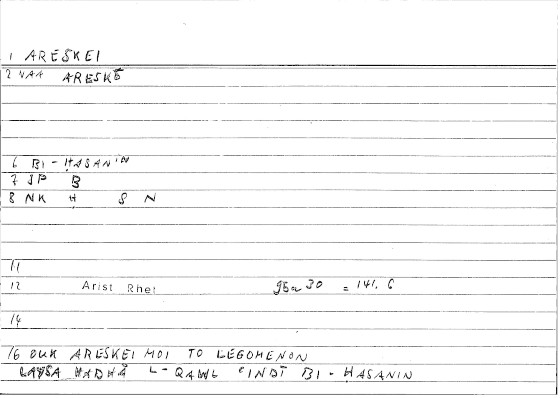 1 ARESKEI
2 VAA ARESKĒ
6 BI-ḤASANIN
7 JP B
8 NK Ḥ S N
11
12 Arist Rhet 95a30 = 141.6
14
16 OUK ARESKEI MOI TO LEGOMENON
LAYSA HADHĀ L-QAWL ʿINDĪ BI-ḤASANIN